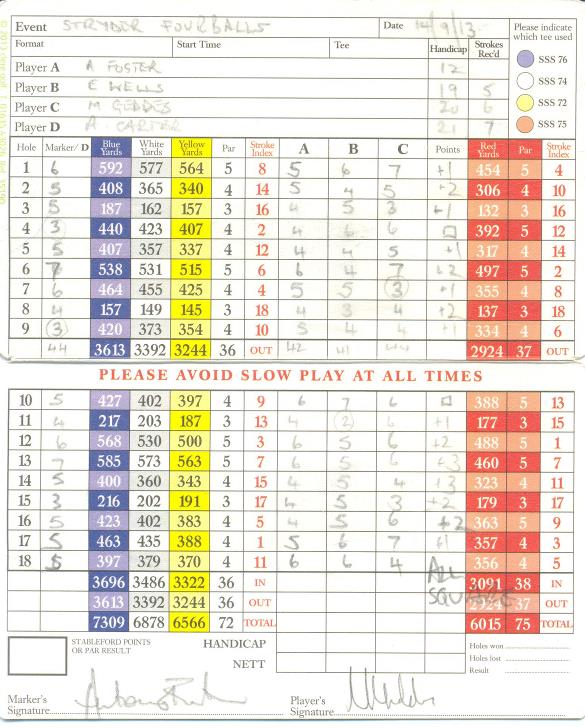 Event STRYDER FOURBALLS Date 14/9/13
Please indicate which tee used
Format Start Time Tee Handicap Strokes Rec'd
Player A A FOSTER 12
Player B E WELLS 19 5
Player C M GEDDES 20 6
Player D A CARTER 21 7
SSS 76
SSS 74
SSS 72
SSS 75
Hole Marker/ D Blue Yards White Yards Yellow Yards Par Stroke Index A B C Points Red Yards Par Stroke Index
1 6 592 577 564 5 8 5 6 7 +1 454 5 4
2 5 408 365 340 4 14 5 4 5 +2 306 4 10
3 5 187 162 157 3 16 4 5 3 +1 132 3 16
4 3 440 423 407 4 2 4 6 6 □ 392 5 12
5 5 407 357 337 4 12 4 4 5 +1 317 4 14
6 7 538 531 515 5 6 6 4 7 +2 497 5 2
7 6 464 455 425 4 4 5 5 3 +1 355 4 8
8 4 157 149 145 3 18 4 3 4 +2 137 3 18
9 3 420 373 354 4 10 5 4 4 +1 334 4 6
44 3613 3392 3244 36 OUT 42 41 44 2924 37 OUT
PLEASE AVOID SLOW PLAY AT ALL TIMES
10 5 427 402 397 4 9 6 7 6 □ 388 5 13
11 4 217 203 187 3 13 4 2 4 +1 177 3 15
12 6 568 530 500 5 3 6 5 6 +2 488 5 1
13 7 585 573 563 5 7 6 5 6 +3 460 5 7
14 5 400 360 343 4 15 4 5 4 +3 323 4 11
15 3 216 202 191 3 17 4 5 3 +2 179 3 17
16 5 423 402 383 4 5 4 5 6 +2 363 5 9
17 5 463 435 388 4 1 5 6 7 +1 357 4 3
18 5 397 379 370 4 11 6 6 4 ALL SQUARE 356 4 5
3696 3486 3322 36 IN 3091 38 IN
3613 3392 3244 36 OUT 2924 37 OUT
7309 6878 6566 72 TOTAL 6015 75 TOTAL
STABLEFORD POINTS OR PAR RESULT
HANDICAP
NETT
Holes won
Holes lost
Result
Marker's Signature
Player's Signature